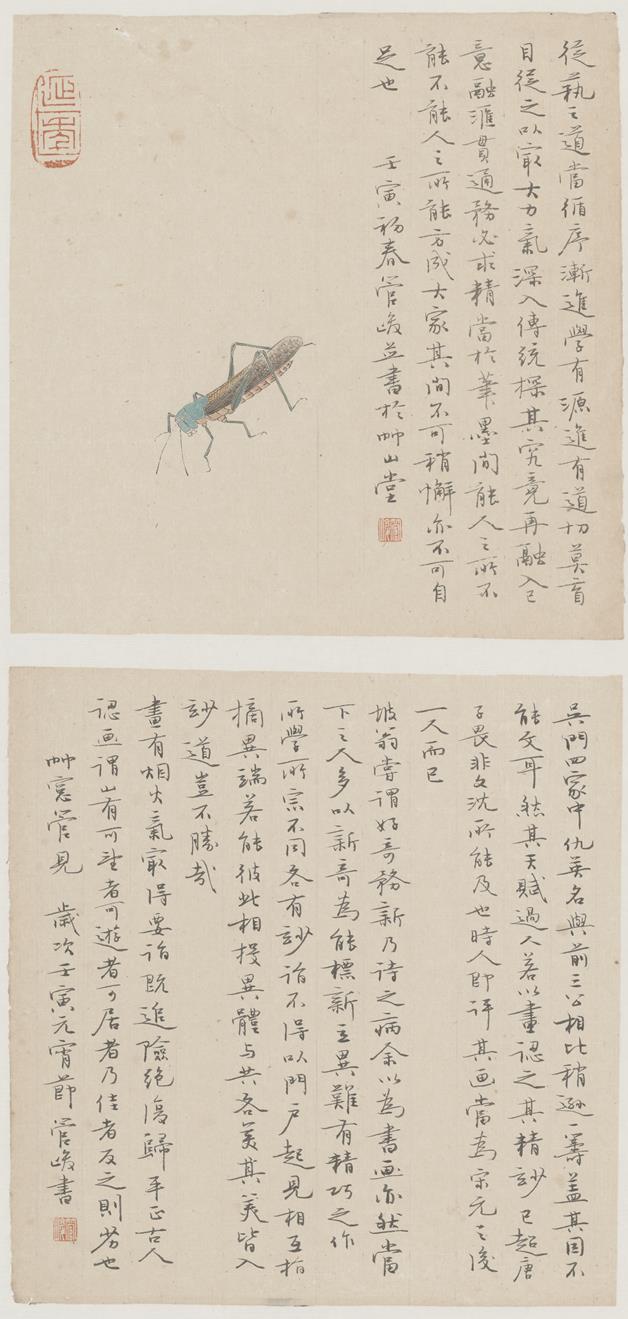 從藝之道當循序漸進學有源進有道切莫盲
目從之以最大力氣深入傳統探其究竟再融入己
意融匯貫通務必求精當於筆墨間能人之所不
能不能人之所能方成大家其間不可稍懈亦不可自
足也
壬寅初春管峻並書於艸山堂
吳門四家中仇英名與前三公相比稍遜一籌蓋其因不
能文耳然其天賦過人若以畫認之其精妙已超唐
子畏非文沈所能及也時人即評其画當為宋元之後
一人而已
坡翁嘗謂好奇務新乃詩之病余以為書画亦然當
下之人多以新奇為能標新立異難有精巧之作
所學所宗不同各有妙詣不得以門戶起見相互指
摘異端若能彼此相授異體与共各美其美皆入
妙道豈不勝哉
畫有烟火氣最得要詣既追險絶復歸平正古人
認画謂山有可望者可遊者可居者乃佳者反之則劣也
艸窓管見 歲次壬寅元宵節管峻書